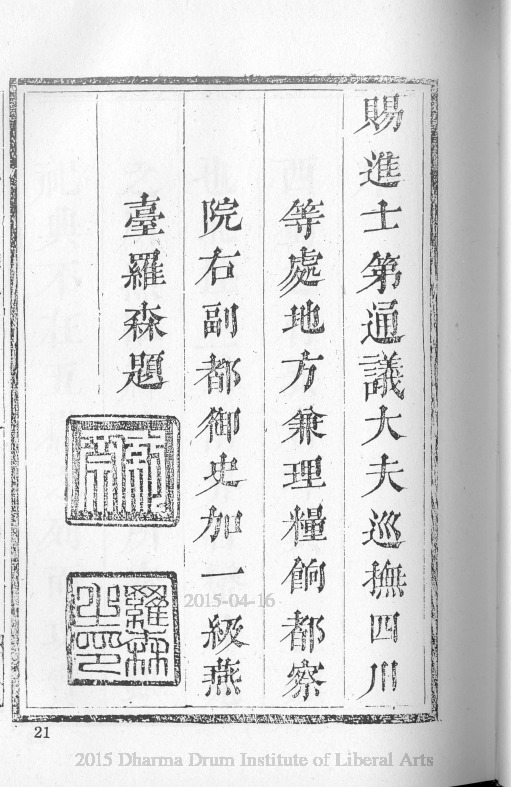 賜進士第通議大夫巡撫四川
等處地方兼理糧餉都察
院右副都御史加一級燕
臺羅森題
羅森之印
21
2015-04-16
2015 Dharma Drum Institute of Liberal Arts